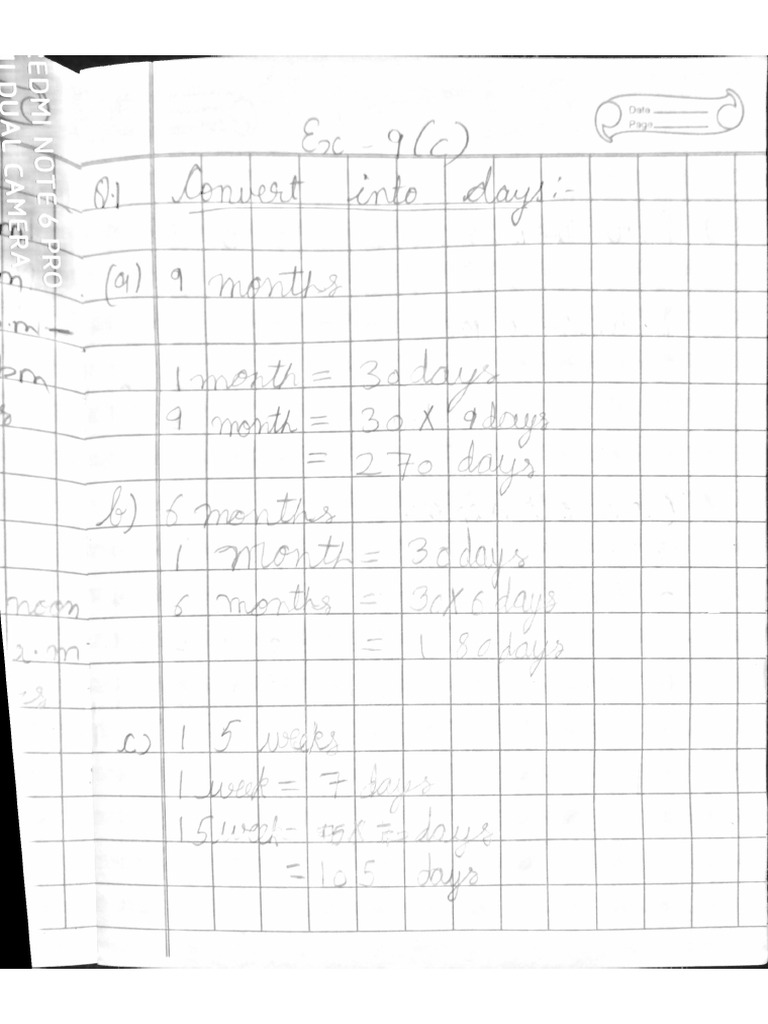 REDMI NOTE 6 PRO
DUAL CAMERA
Date
Page
Ex - 9(c)
Q.1 Convert into days:-
(a) 9 months
1 month = 30 days
9 month = 30 X 9 days
= 270 days
b) 6 months
1 month = 30 days
6 months = 30 X 6 days
= 180 days
c) 15 weeks
1 week = 7 days
15 week = 15 X 7 days
= 105 days
noon